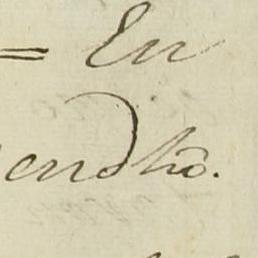 = En
endho.